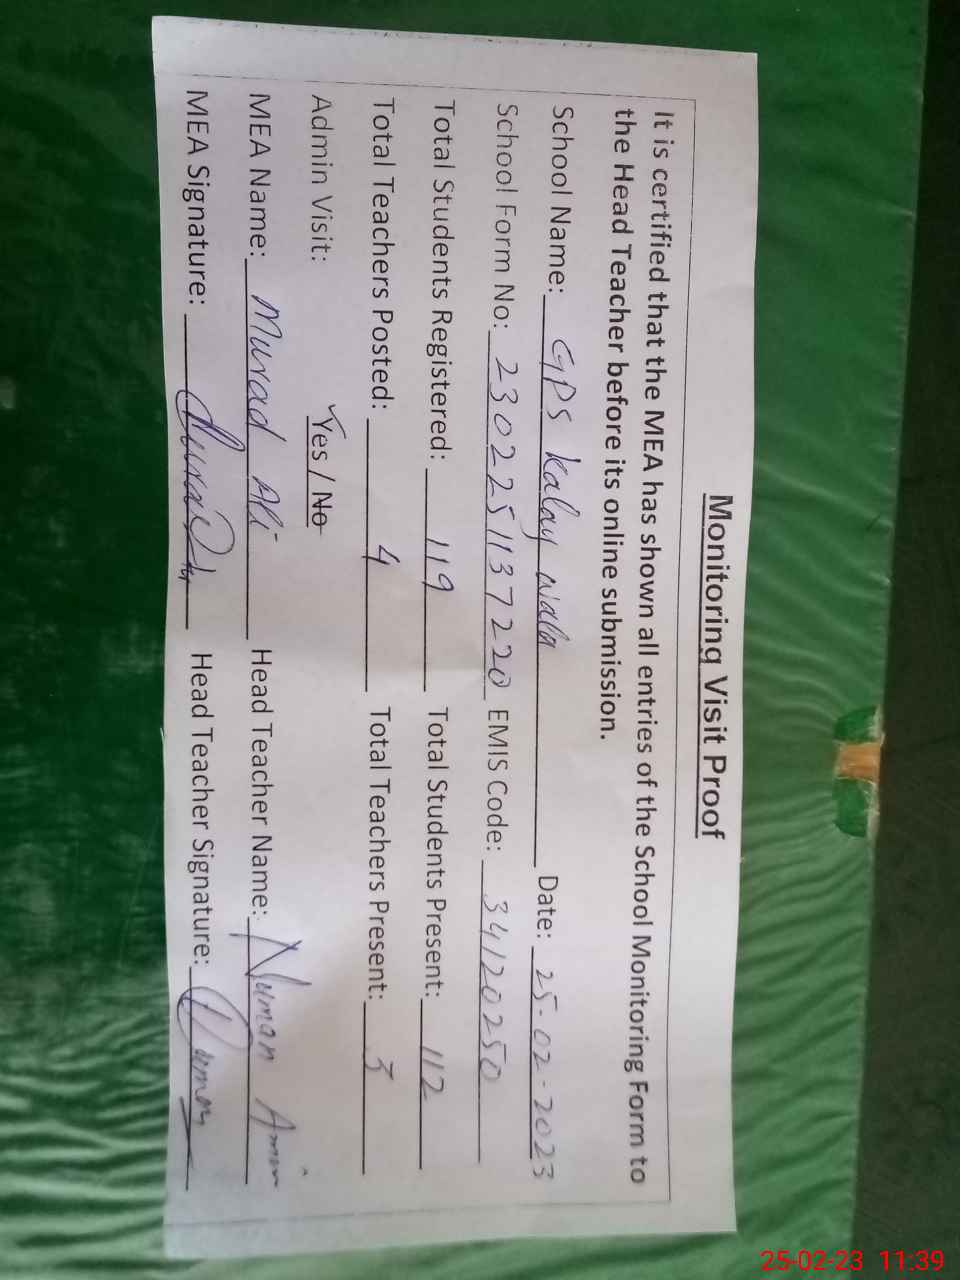 Monitoring Visit Proof
It is certified that the MEA has shown all entries of the School Monitoring Form to
the Head Teacher before its online submission.
School Name: GPS kalay wala Date: 25-02-2023
School Form No: 2302251137220 EMIS Code: 34120250
Total Students Registered: 119 Total Students Present: 112
Total Teachers Posted: 4 Total Teachers Present: 3
Admin Visit: Yes / No
MEA Name: Murad Ali Head Teacher Name: Numan Amin
MEA Signature: Head Teacher Signature:
25-02-23 11:39